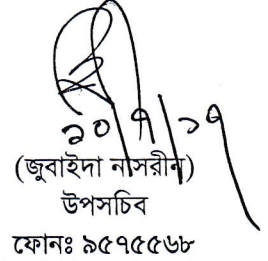 ২০/৭/১৭
(জুবাইদা নাসরীন)
উপসচিব
ফোনঃ ৯৫৭৫৫৬৮